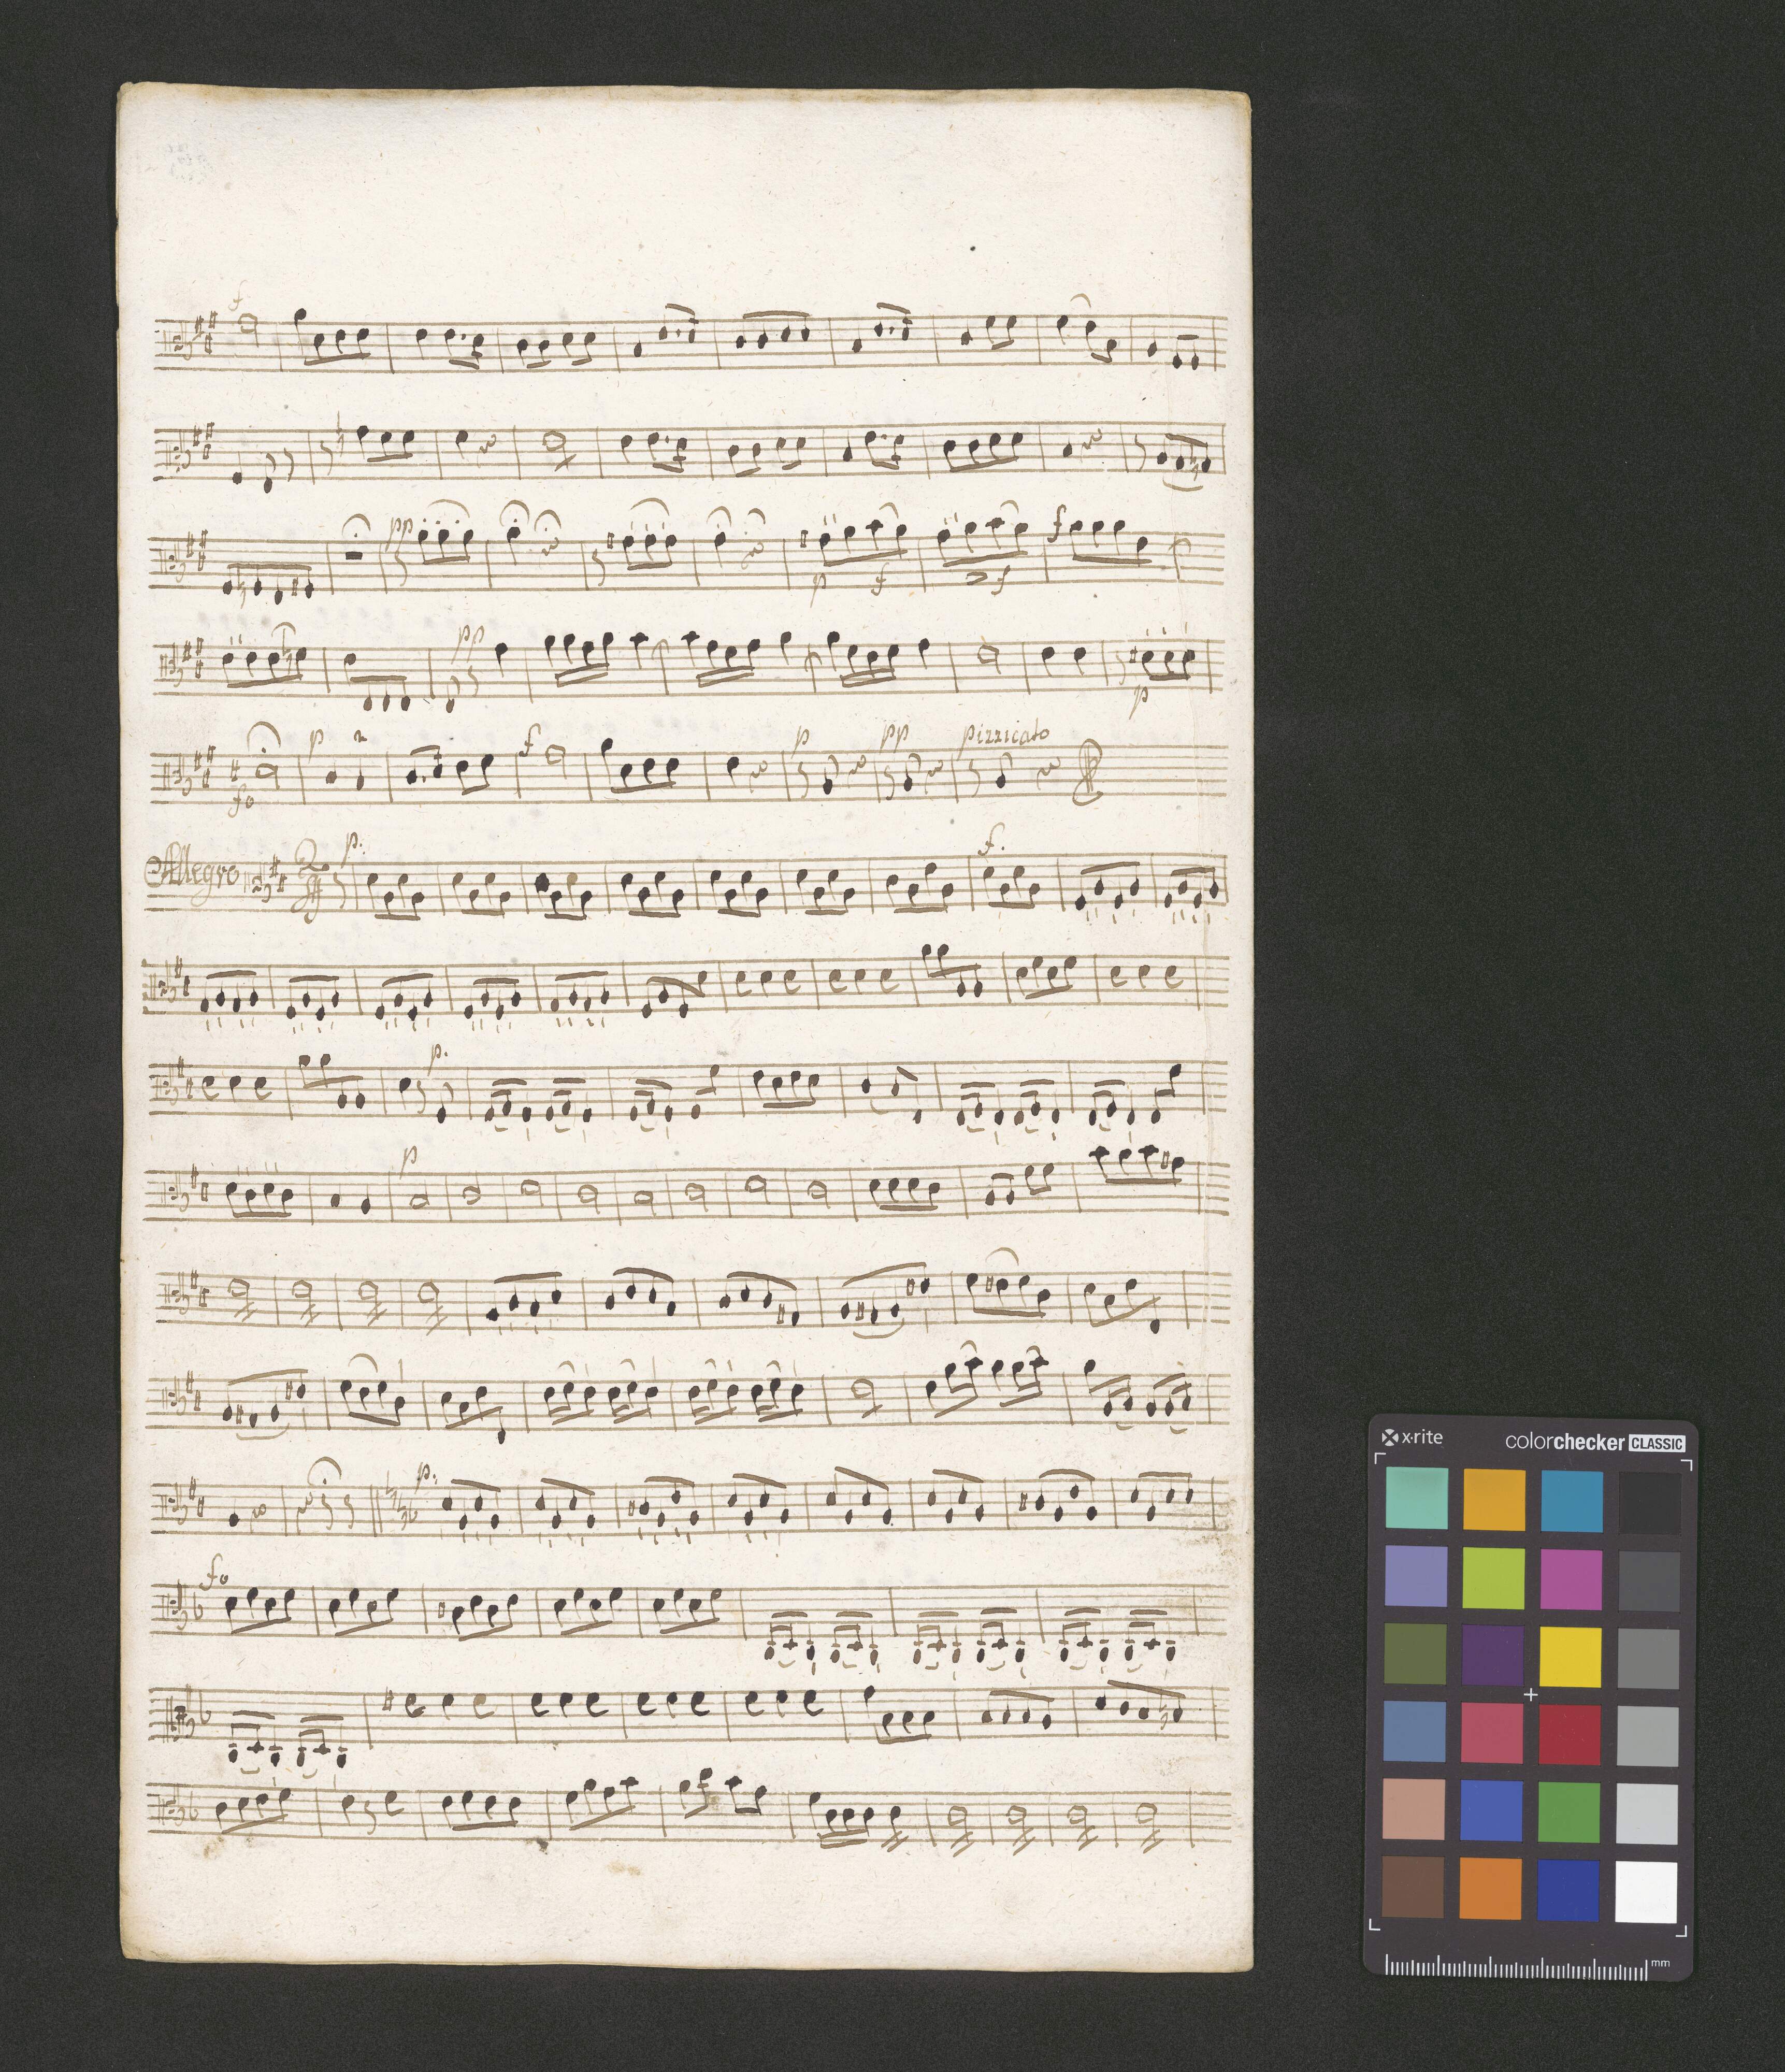 f
pp
p f f f
pp p
p 2 f p pp pizzicato
fo
Allegro 2/4 p. f.
p.
p
p.
fo
x-rite colorchecker CLASSIC
mm